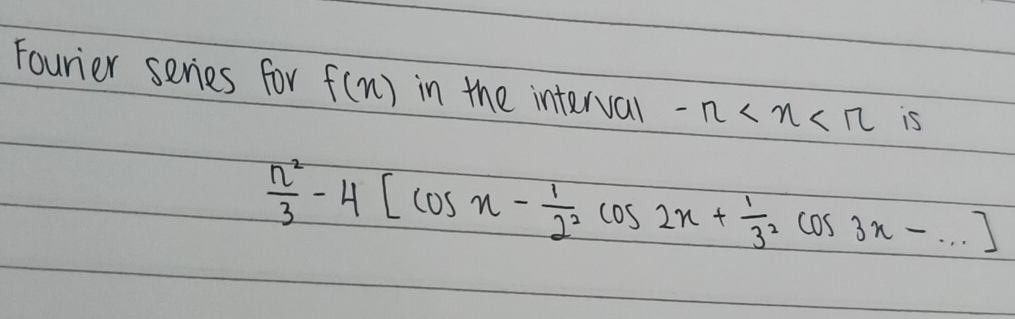 Fourier series for f(x) in the interval -π < x < π is
π²/3 - 4 [ cos x - 1/2² cos 2x + 1/3² cos 3x - ... ]